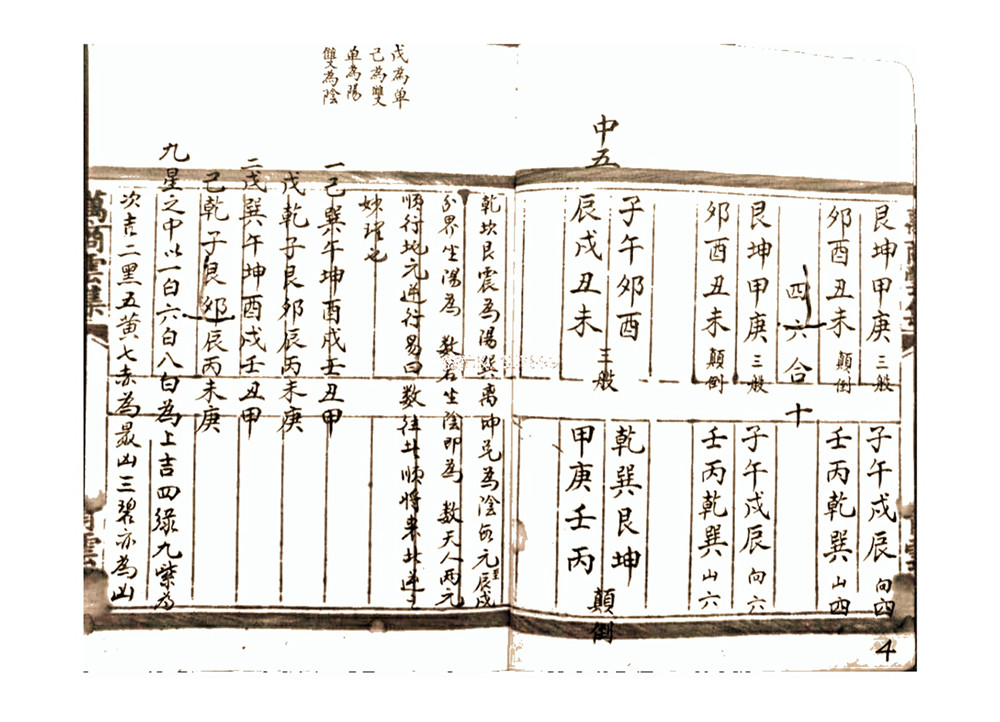 艮坤甲庚 三般
子午戌辰 向四
卯酉丑未 顛倒
壬丙乾巽 山四
四六合十
艮坤甲庚 三般
子午戌辰 向六
卯酉丑未 顛倒
壬丙乾巽 山六
中五
子午卯酉
乾巽艮坤
辰戌丑未 三般
甲庚壬丙 顛倒
4
戊為单
己為雙
单為陽
雙為陰
乾坎艮震為陽巽离坤兑為陰 元 辰戌
分界生陽為 数 生陰即為 数天人兩元
順行地元逆行易曰数往者順将来 逆
也
一己巽午坤酉戌壬丑甲
戊乾子艮卯辰丙未庚
二戊巽午坤酉戌壬丑甲
己乾子艮卯辰丙未庚
九星之中以一白六白八白為上吉四綠九紫為
次吉二黑五黄七赤為最凶三碧亦為凶
萬商雲集
商雲